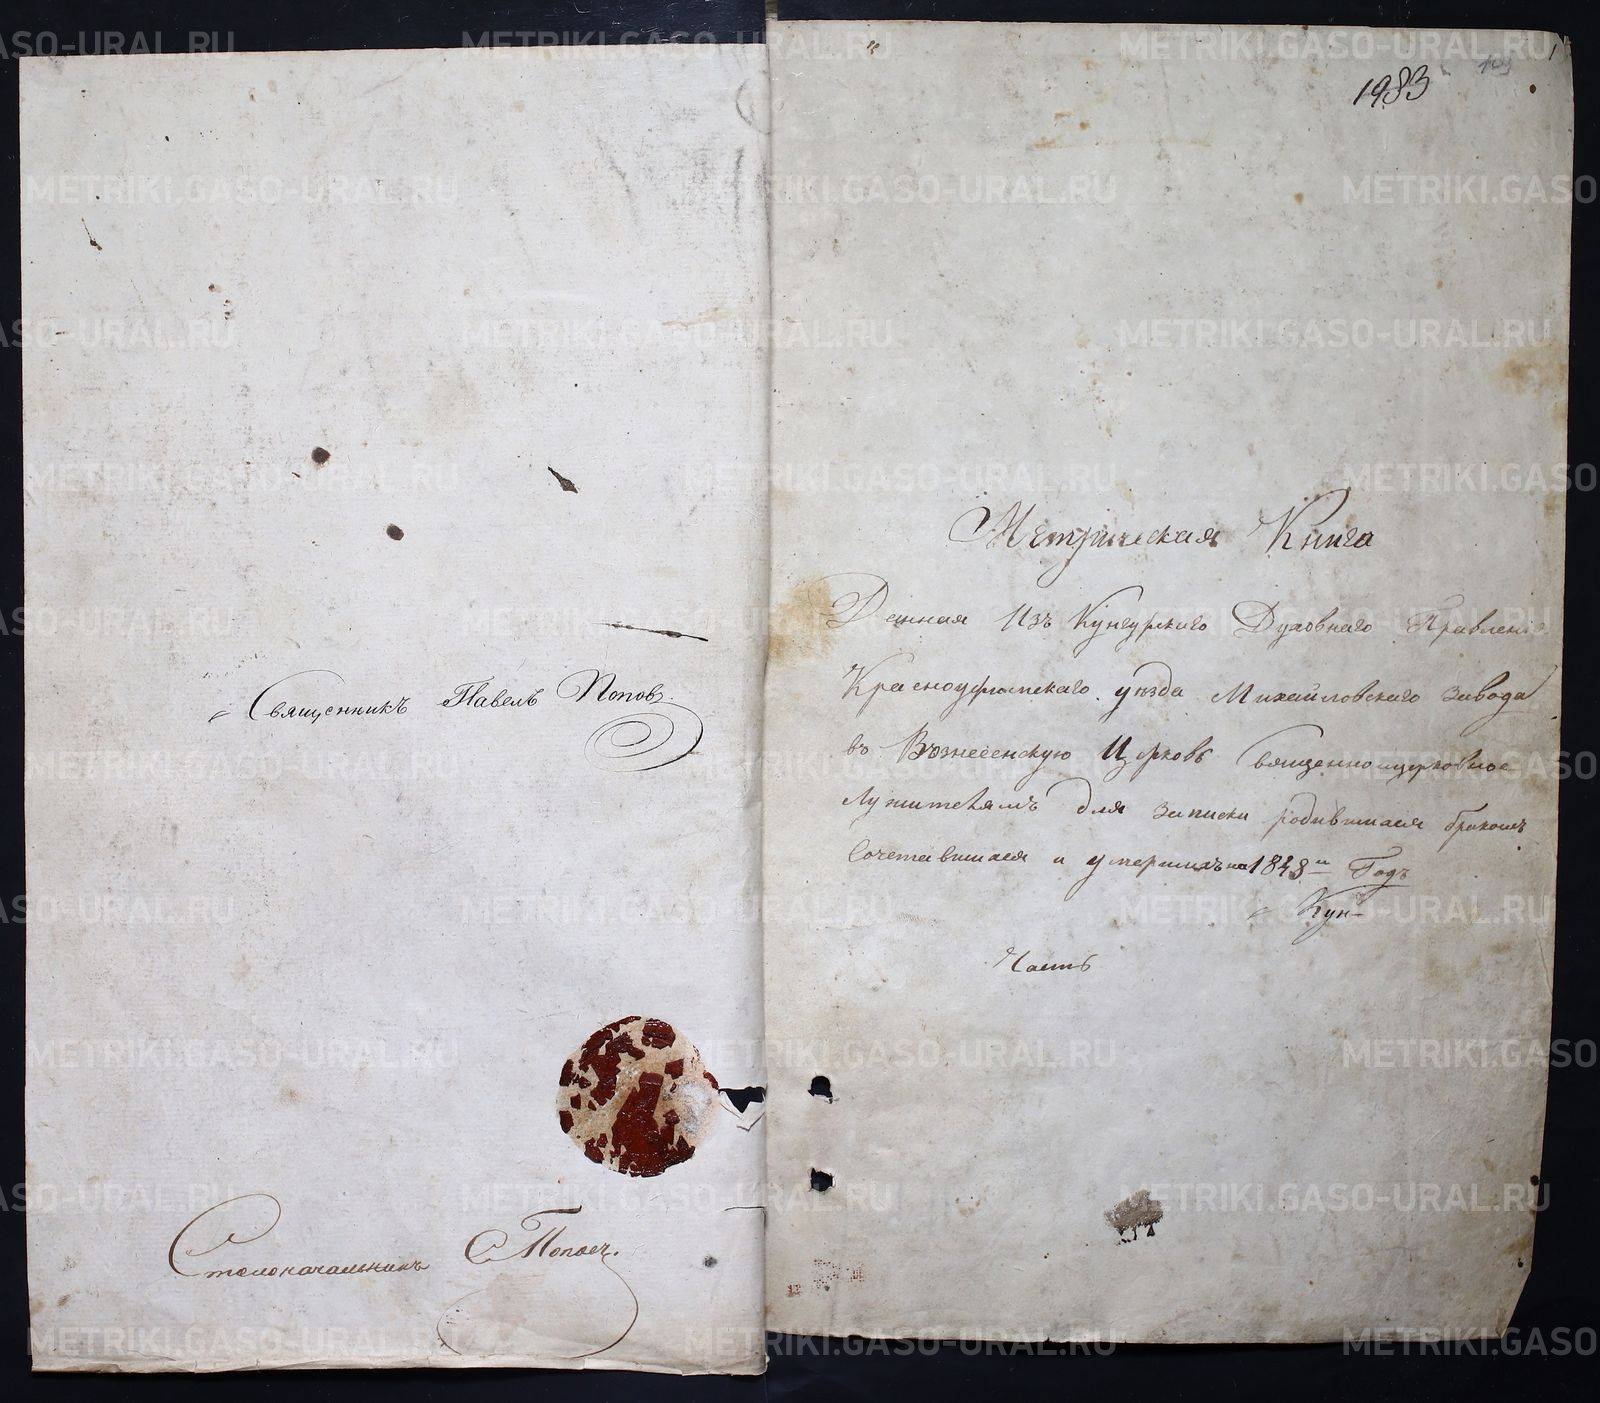 Священникъ Павелъ Поповъ
Столоначальникъ С Попов
1983
1
Метрическая Книга
Данная Изъ Кунгурского Духовнаго Правления
Красноуфимскаго уѣзда Михайловскаго завода
въ Вознесенскую Церковь Священноцерковно
служителямъ для записки родившихся бракомъ
Сочетавшихся и умершихъ на 1843й Годъ
Кун-
Часть
METRIKI.GASO-URAL.RU